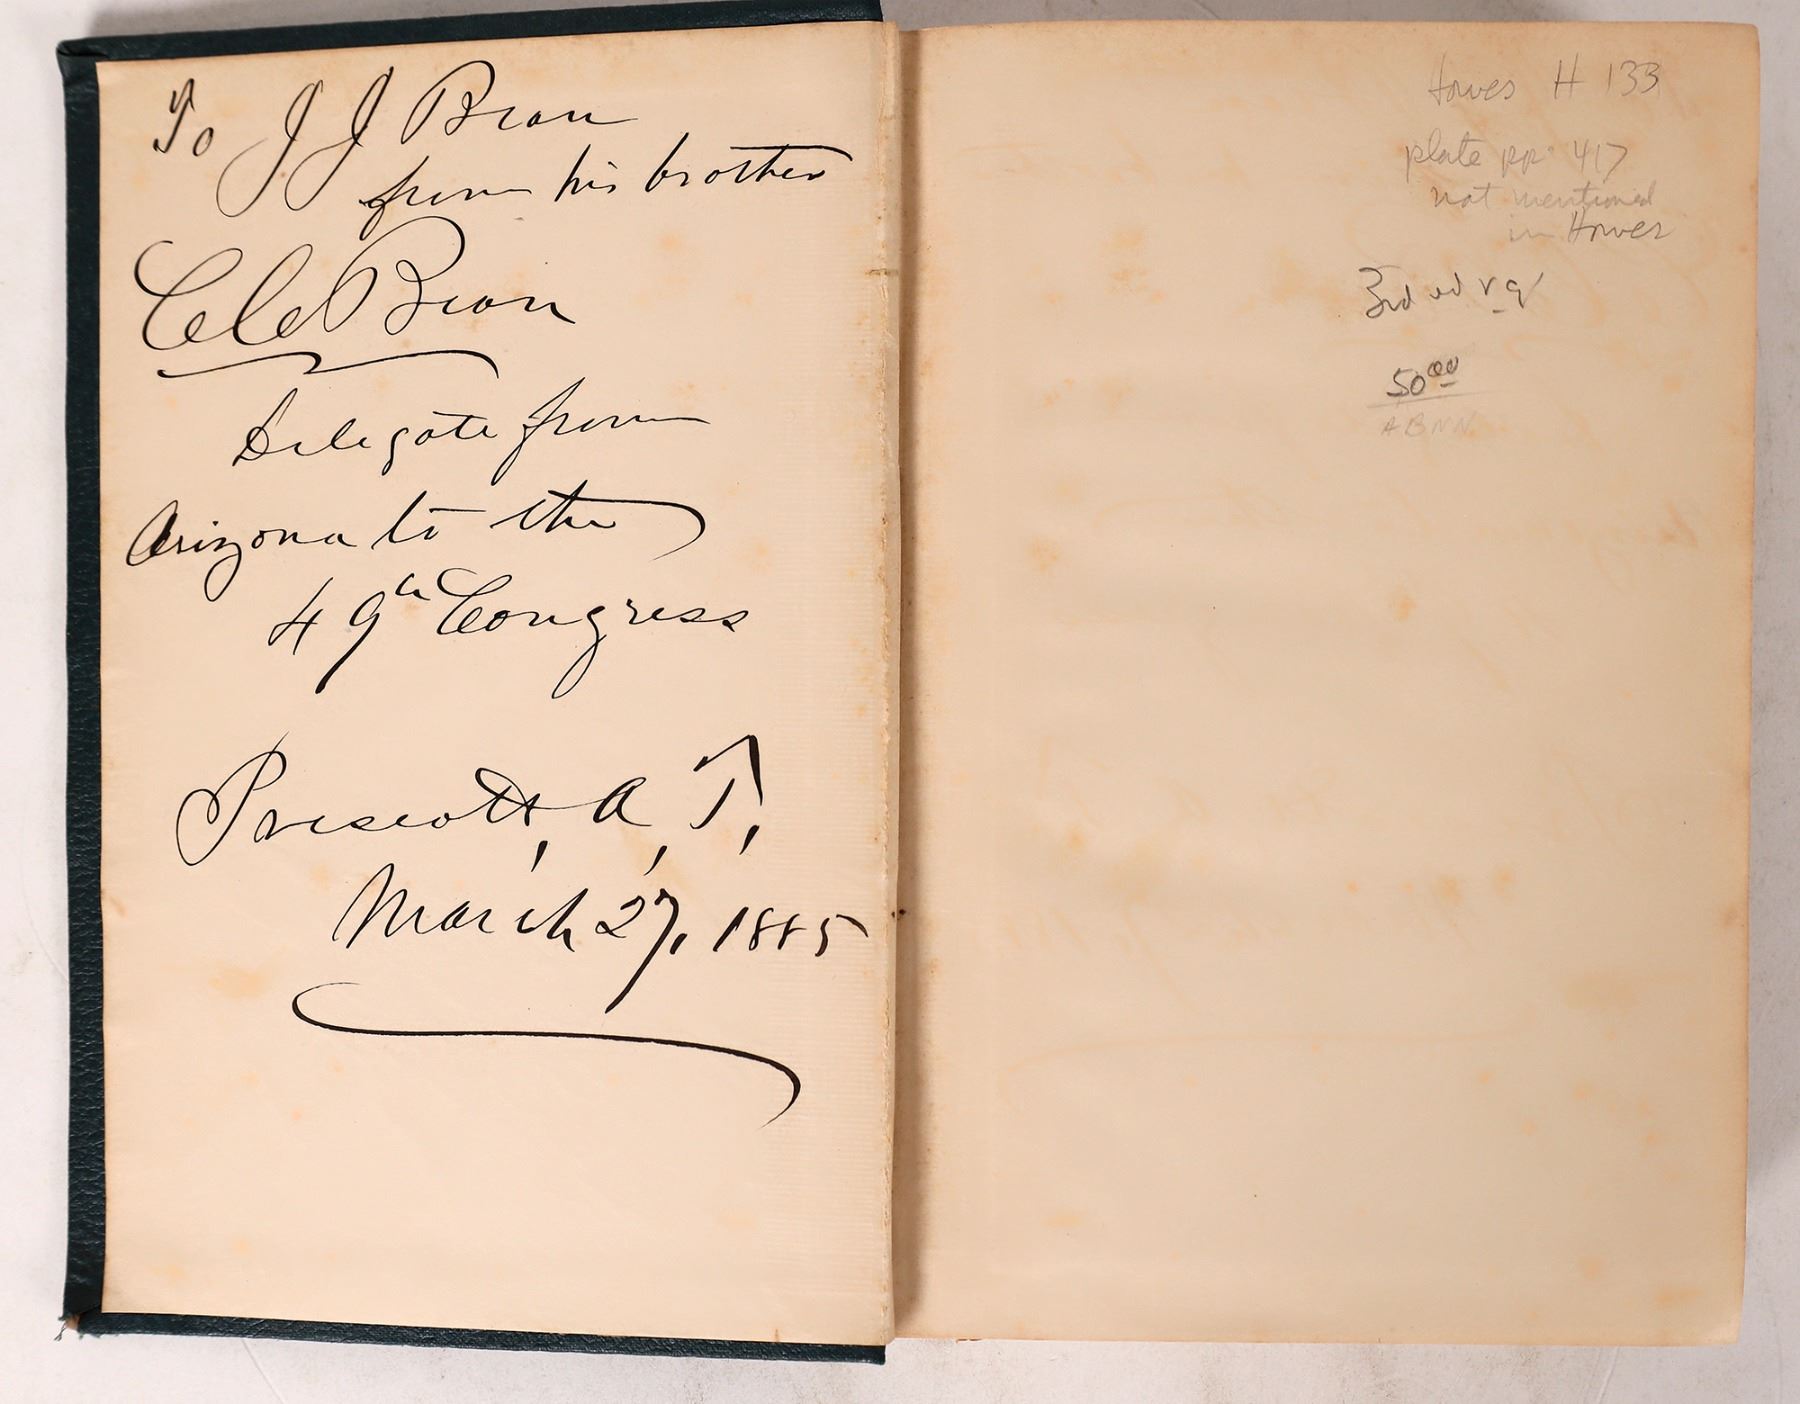 To J J Bean
from his brother
C C Bean
Delegate from
Arizona to the
49th Congress
Prescott, A, T,
March 27, 1885
Howes H 133
plate pp. 417
not mentioned
in Howes
3rd ed v g
50 00